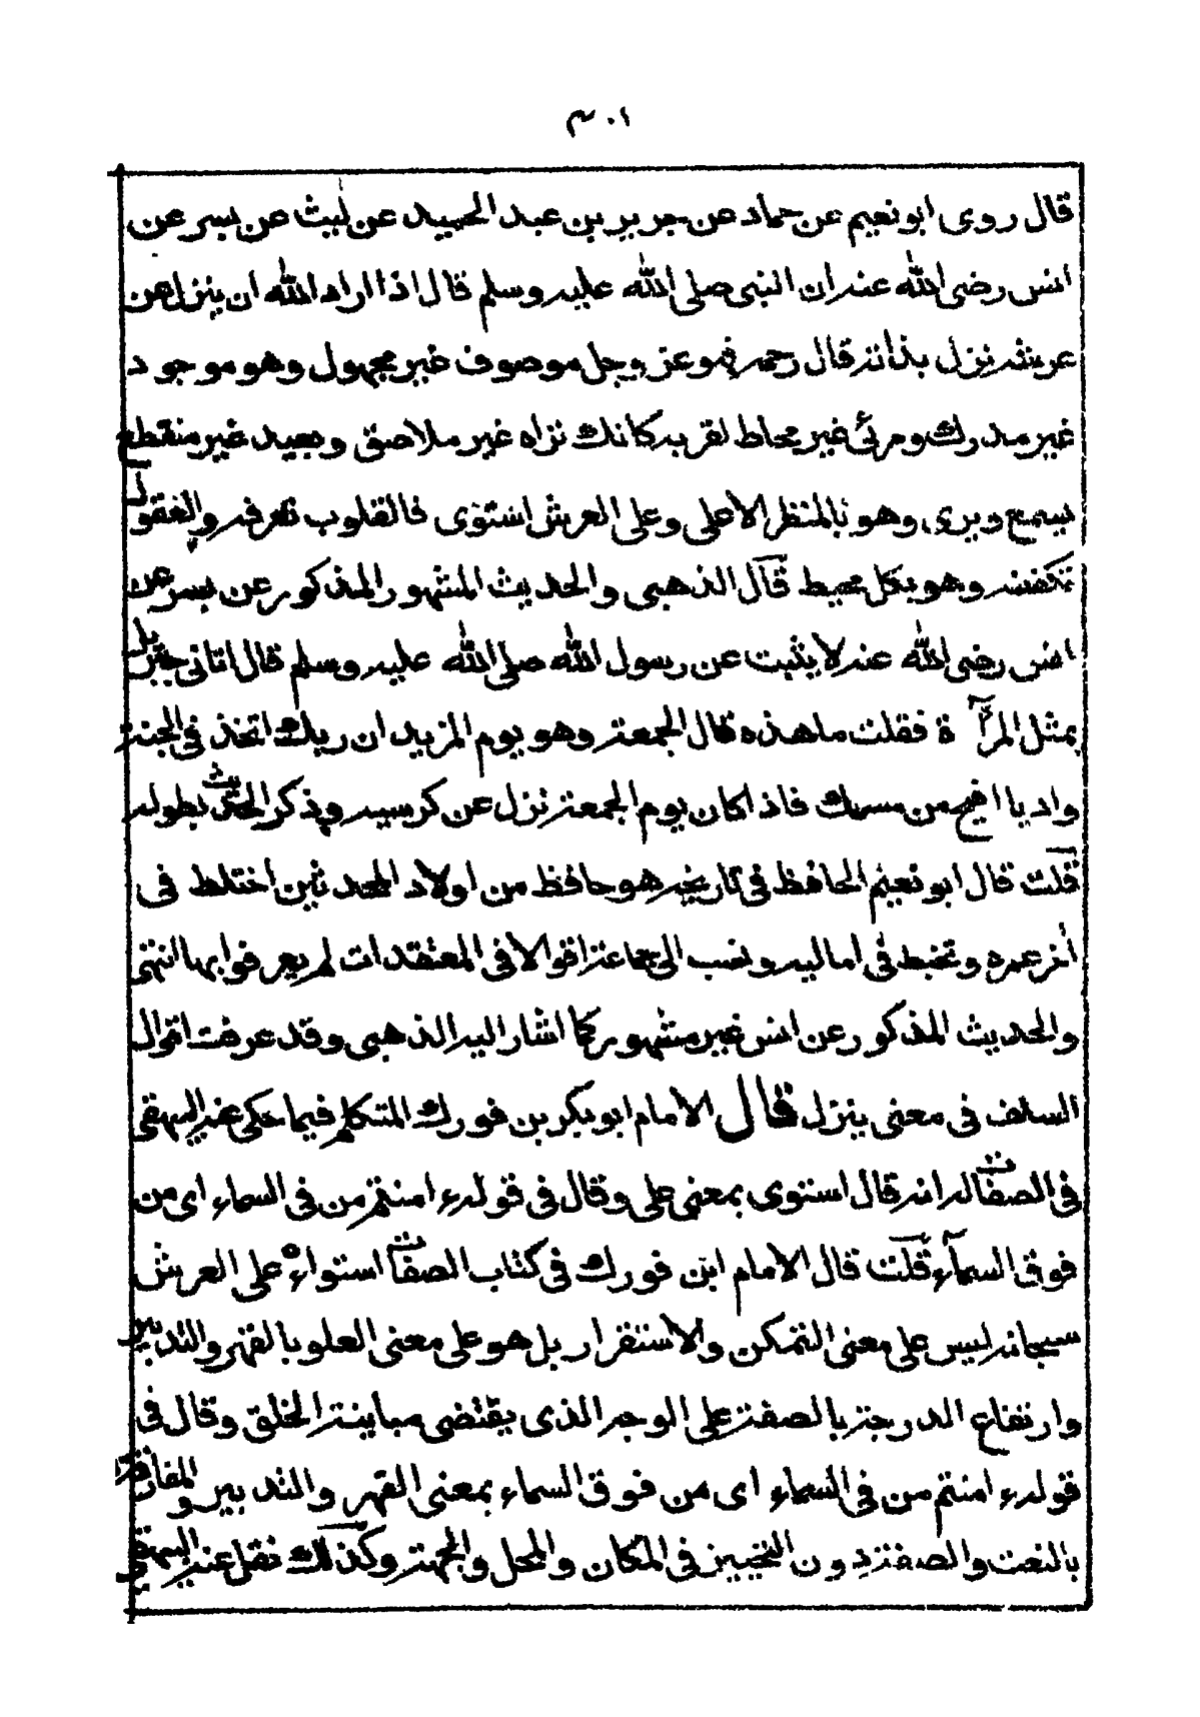 ٣٠١
قال روى ابو نعيم عن حماد عن جرير بن عبد الحميد عن ليث عن بسر عن
انس رضى الله عنه ان النبى صلى الله عليه وسلم قال اذا اراد الله ان ينزل عن
عرشه نزل بذاته قال رحمه فهو عز وجل موصوف غير مجهول وهو موجود
غير مدرك ومرئى غير محاط لقربه كانك تراه غير ملاصق وبعيد غير منقطع
يسمع ويرى وهو بالمنظر الاعلى وعلى العرش استوى فالقلوب تعرفه والعقول
تكفنه وهو بكل محيط قال الذهبى والحديث المشهور المذكور عن بسر عن
انس رضى الله عنه لا يثبت عن رسول الله صلى الله عليه وسلم قال اتانى جبريل
بمثل المرآة فقلت ما هذه قال الجمعة وهو يوم المزيد ان ربك اتخذ فى الجنة
واديا افيح من مسك فاذا كان يوم الجمعة نزل عن كرسيه وذكر الحديث بطوله
قلت قال ابو نعيم الحافظ فى تاريخه هو حافظ من اولاد المحدثين اختلط فى
آخر عمره وتخبط فى اماليه ونسب الى جماعة اقوالا فى المعتقدات لم يعرفوا بها انتهى
والحديث المذكور عن انس غير مشهور كما اشار اليه الذهبى وقد عرفت اقوال
السلف فى معنى ينزل قال الامام ابو بكر بن فورك المتكلم فيما حكى عنه البيهقى
فى الصفات له انه قال استوى بمعنى على وقال فى قوله ءامنتم من فى السماء اى من
فوق السمآء قلت قال الامام ابن فورك فى كتاب الصفات استواءه على العرش
سبحانه ليس على معنى التمكن والاستقرار بل هو على معنى العلو بالقهر والتدبير
وارتفاع الدرجة بالصفة على الوجه الذى يقتضى مباينة الخلق وقال فى
قوله ءامنتم من فى السماء اى من فوق السماء بمعنى القهر والتدبير والمفارقة
بالنعت والصفة دون التحييز فى المكان والمحل والجهة وكذلك نقل عنه البيهقى